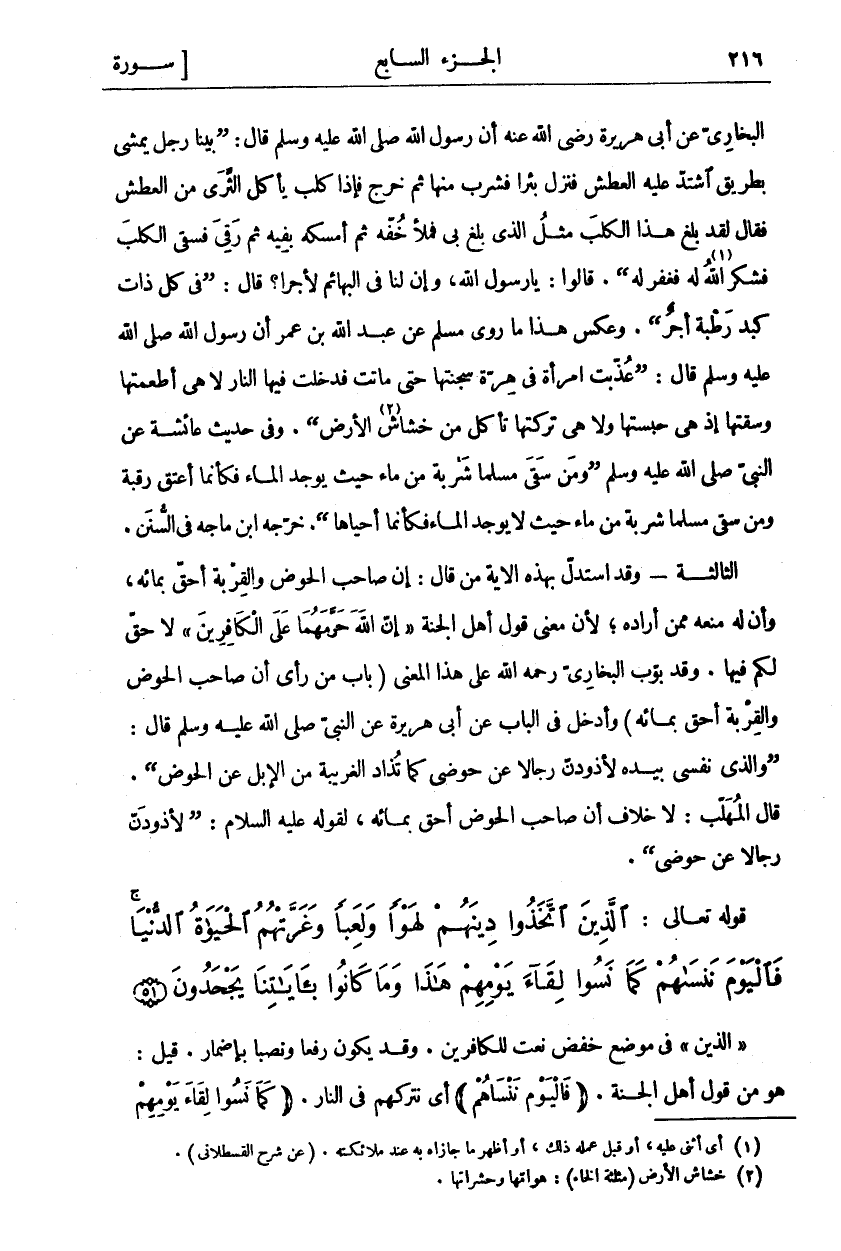 ٢١٦ الجـزء السـابع [ ســورة
البخارىّ عن أبى هريرة رضى الله عنه أن رسول الله صلى الله عليه وسلم قال: ”بينا رجل يمشى
بطريق ٱشتدّ عليه العطش فنزل بئرا فشرب منها ثم خرج فإذا كلب يأكل الثَّرَى من العطش
فقال لقد بلغ هـذا الكلبَ مثلُ الذى بلغ بى فملأ خُفّه ثم أمسكه بِفِيه ثم رَقِىَ فسقى الكلبَ
فشكر اللهُ (١) له فغفر له“ . قالوا : يارسول الله، وإن لنا فى البهائم لأجرا؟ قال : ”فى كل ذات
كبد رَطْبة أجرٌ“ . وعكس هـذا ما روى مسلم عن عبـد الله بن عمر أن رسول الله صلى الله
عليه وسلم قال : ”عُذّبت امرأة فى هِرّة سجنتها حتى ماتت فدخلت فيها النار لا هى أطعمتها
وسقتها إذ هى حبستها ولا هى تركتها تأكل من خشاش (٢) الأرض“ . وفى حديث عائشـة عن
النبىّ صلى الله عليه وسلم ”ومَن سَقَى مسلما شَرْبة من ماء حيث يوجد المـاء فكأنما أعتق رقبة
ومن سقى مسلما شربة من ماء حيث لا يوجد المـاء فكأنما أحياها“. خرّجه ابن ماجه فى السُّنَن .
الثالثـــة — وقد استدلّ بهذه الاية من قال : إن صاحب الحوض والقِرْبة أحقّ بمائه،
وأن له منعه ممن أراده ؛ لأن معنى قول أهل الجنة « إنّ اللهَ حَرَّمَهُمَا عَلَى الْكَافِرِينَ » لا حقّ
لكم فيها . وقد بوّب البخارىّ رحمه الله على هذا المعنى ( باب من رأى أن صاحب الحوض
والقِرْبة أحق بمـائه ) وأدخل فى الباب عن أبى هريرة عن النبىّ صلى الله عليـه وسلم قال :
”والذى نفسى بيـده لأذودنّ رجالا عن حوضى كما تُذاد الغريبة من الإبل عن الحوض“ .
قال المُهَلّب : لا خلاف أن صاحب الحوض أحق بمـائه ، لقوله عليه السلام : ”لأذودَنّ
رجالا عن حوضى“ .
قوله تعـالى : ٱلَّذِينَ ٱتَّخَذُوا دِينَهُـمْ لَهْوًا وَلَعِبًا وَغَرَّتْهُمُ ٱلْحَيَوٰةُ ٱلدُّنْيَاۚ
فَٱلْيَوْمَ نَنسَىٰهُمْ كَمَا نَسُوا لِقَآءَ يَوْمِهِمْ هَٰذَا وَمَا كَانُوا بِـَٔايَـٰتِنَا يَجْحَدُونَ ۝٥١
« الذين » فى موضع خفض نعت للكافرين . وقـد يكون رفعا ونصبا بإضمار . قيل :
هو من قول أهل الجـنة . ﴿ فَالْيَوْمَ نَنْسَاهُمْ ﴾ أى نتركهم فى النار . ﴿ كَمَا نَسُوا لِقَاءَ يَوْمِهِمْ
(١) أى أثنى عليه، أو قبل عمله ذلك ، أو أظهر ما جازاه به عند ملائكته . ( عن شرح القسطلانى ) .
(٢) خشاش الأرض (مثلثة الخاء) : هواتها وحشراتها .